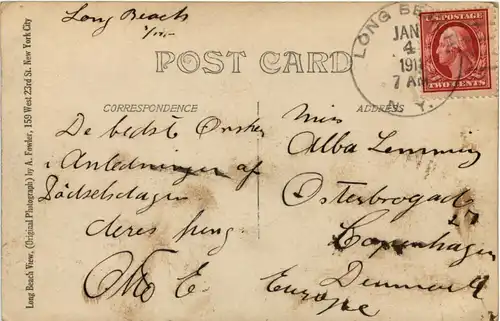 Long Beach
POST CARD
LONG BE
JAN
4
191
7 AM
N. Y.
U.S. POSTAGE
TWO CENTS
CORRESPONDENCE
ADDRESS
De bedste Ønsker
i Anledningen af
Fødselsdagen
deres
Otto E.
Miss
Alba Lemming
Østerbrogade
27
Copenhagen
Denmark
Europe
Long Beach View, (Original Photograph) by A. Fowler, 159 West 23rd St. New York City